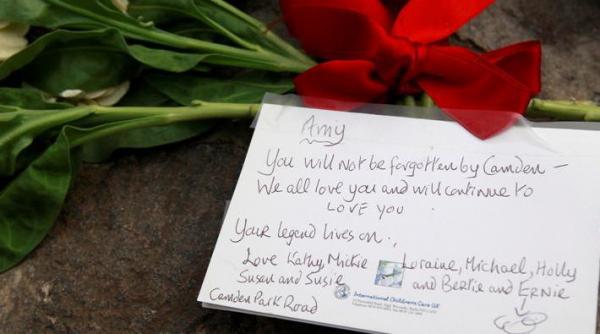 Amy
You will not be forgotten by Camden –
We all love you and will continue to
LOVE YOU
Your legend lives on..
Love Kathy, Mickie
Susan and Susie
Camden Park Road
Loraine, Michael, Holly
and Bertie and ERNIE
International Childrens Care UK